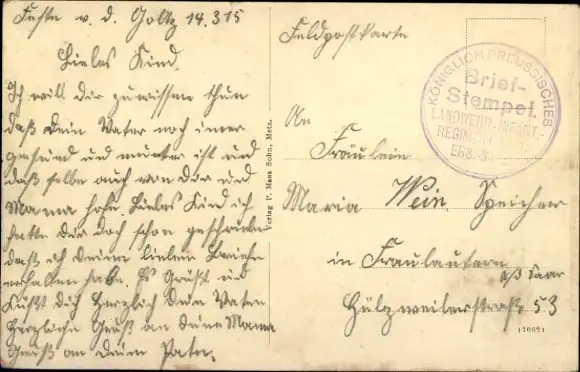 Feste v. d. Goltz 14.3.15
Liebes Kind.
Ich will dir zuwissen thun
daß dein Vater noch imer
gesund und munter ist und
daß selbe auch von dir und
Mama hofe. Liebes Kind ich
hatte dir doch schon geschrieben
daß ich deine lieben Briefe
erhalten habe. Es Grüßt und
Küßt dich Herzlich dein Vater
Herzliche Gruß an deine Mama
Gruß an dein Patn.
Verlag P. Maas Sohn, Metz.
Feldpostkarte
KÖNIGLICH PREUSSISCHES
Brief-
Stempel.
LANDWEHR-INFANT.-
REGIMENT
ERS.-
An
Fräulein
Maria Wein, Speicher
in Fraulautern
a/d Saar
Hülzweilerstraß. 53